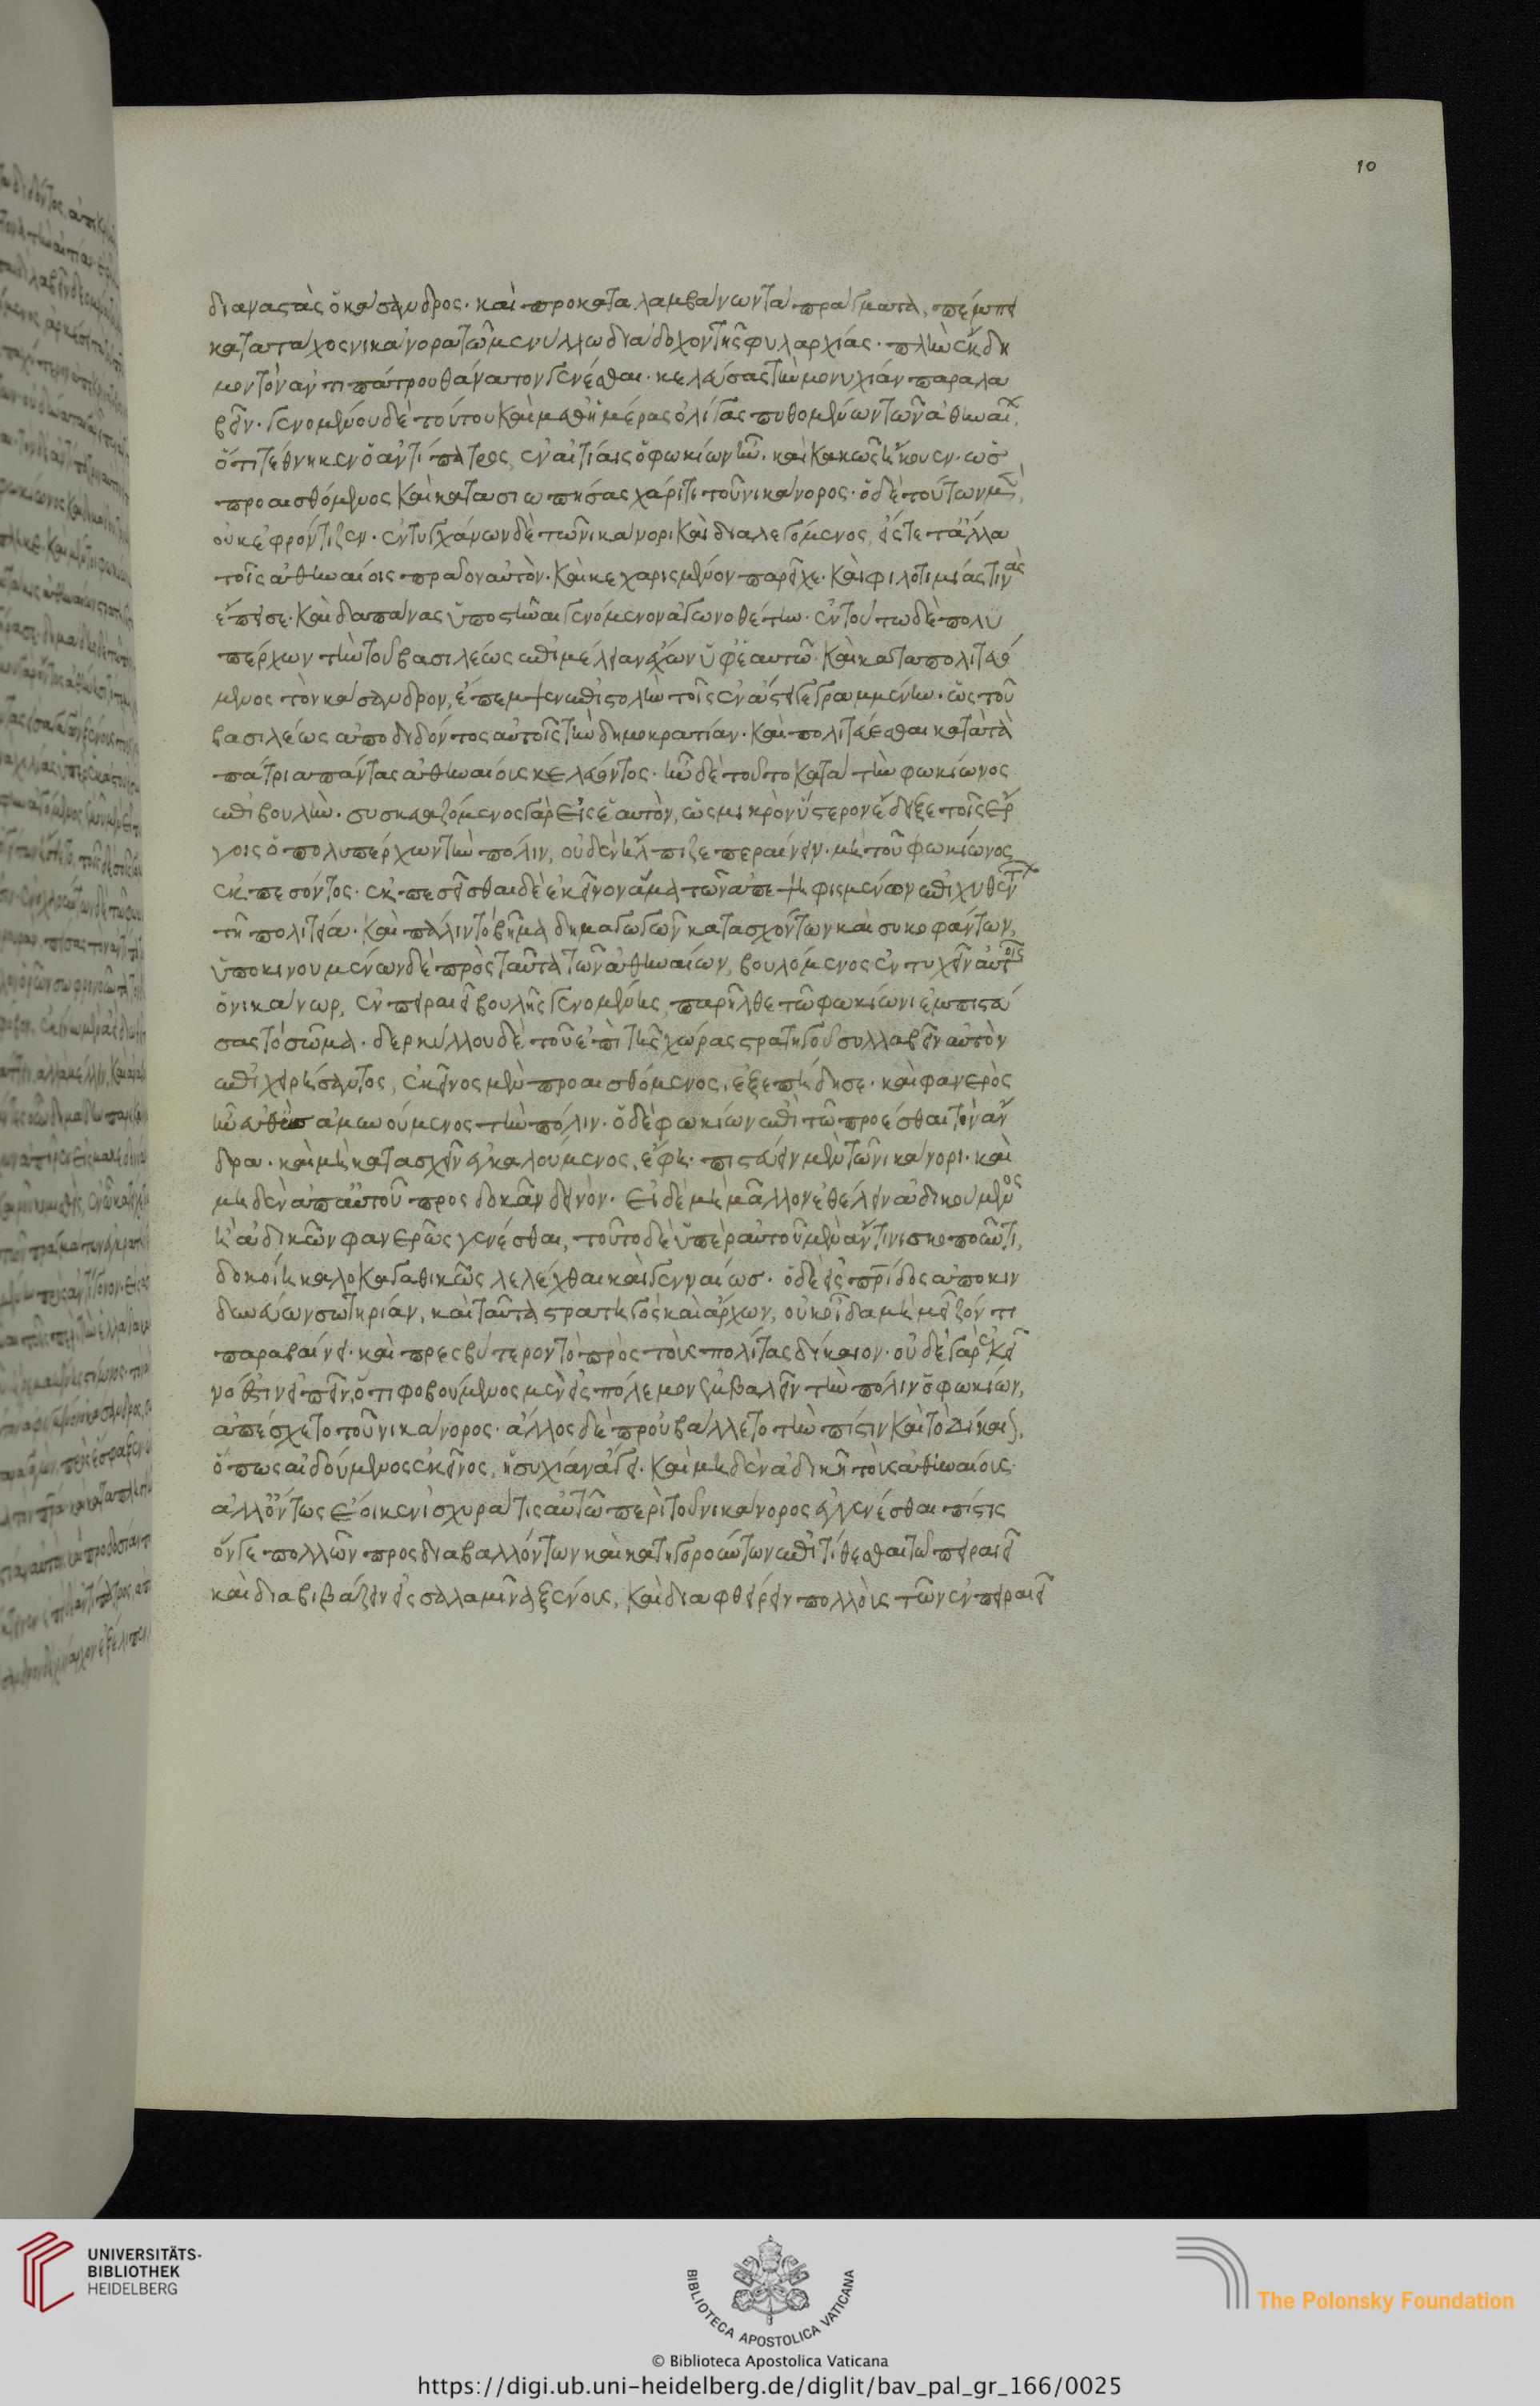 διαναστὰς ὁ κάσανδρος· καὶ προκαταλαμβάνων τὰ πράγματα, πέμπει
κατατάχος νικάνορα τῶ μενύλλω διάδοχον τῆς φυλαρχίας· πλὴν ἔκδη
μον τὸν ἀντιπάτρου θάνατον γενέσθαι· κελεύσας τὴν μονυχίαν παραλα
βεῖν· γενομένου δὲ τούτου καὶ μεθημέρας ὀλίγας πυθομένων τῶν ἀθηναί,
ὅτι τέθνηκεν ὁ ἀντίπατρος, ἐν αἰτίαις ὁ φωκίων ἦν. καὶ κακῶς ἤκουεν· ὡς
προαισθόμενος καὶ κατασιωπήσας χάριτι τοῦ νικάνορος· ὁ δὲ τούτων μὲν,
οὐκ ἐφρόντιζεν· ἐντυγχάνων δὲ τῶ νικάνορι καὶ διαλεγόμενος, ἔς τε τἄλλα
τοῖς ἀθηναίοις πρᾶον αὐτὸν· καὶ κεχαρισμένον παρεῖχε· καὶ φιλοτιμίας τινὰς
ἔπεισε· καὶ δαπάνας ὑποστῆναι γενόμενον ἀγωνοθέτην· ἐν τούτω δὲ πολυ
πέρχων τὴν τοῦ βασιλέως ἐπιμέλειαν ἔχων ὑφ' ἑαυτῶ· καὶ καταπολιτευό
μενος τὸν κάσανδρον, ἔπεμψεν ἐπιστολὴν τοῖς ἐν ἄστει γεγραμμένην· ὡς τοῦ
βασιλέως ἀποδιδόντος αὐτοῖς τὴν δημοκρατίαν· καὶ πολιτεύεσθαι κατὰ τὰ
πάτρια πάντας ἀθηναίους κελεύοντος· ἦν δὲ τοῦτο κατὰ τὴν φωκίωνος
ἐπιβουλὴν· συσκευαζόμενος γὰρ εἰς ἑαυτὸν, ὡς μικρὸν ὕστερον ἔδειξε τοῖς ἔρ
γοις ὁ πολυπέρχων τὴν πόλιν, οὐδὲν ἤλπιζε περαίνειν· μὴ τοῦ φωκίωνος
ἐκπεσόντος· ἐκπεσεῖσθαι δὲ ἐκεῖνον ἅμα τῶν ἀπεψηφισμένων ἐπιχυθέντων
τῆ πολιτεία· καὶ πάλιν τὸ βῆμα δημαγωγῶν κατασχόντων καὶ συκοφαντων,
ὑποκινουμένων δὲ πρὸς ταῦτα τῶν ἀθηναίων, βουλόμενος ἐντυχεῖν αὐτοῖς
ὁ νικάνωρ, ἐν πειραιεῖ βουλῆς γενομένης, παρῆλθε τῶ φωκίωνι ἐμπιστεύ
σας τὸ σῶμα· δερκύλλου δὲ τοῦ ἐπὶ τῆς χώρας στρατηγοῦ συλλαβεῖν αὐτὸν
ἐπιχειρήσαντος, ἐκεῖνος μὲν προαισθόμενος, ἐξεπήδησε· καὶ φανερὸς
ἦν εὐθὺς ἀμυνούμενος τὴν πόλιν· ὁ δὲ φωκίων ἐπὶ τῶ προέσθαι τὸν ἄν
δρα· καὶ μὴ κατασχεῖν ἐγκαλούμενος, ἔφη· πιστεύειν μὲν τῶ νικάνορι· καὶ
μηδὲν ἀπ' αὐτοῦ προσδοκᾶν δεινόν· εἰ δὲ μὴ μᾶλλον ἐθέλειν ἀδικούμενος
ἢ ἀδικῶν φανερῶς γενέσθαι, τοῦτο δὲ ὑπὲρ αὐτοῦ μὲν ἄν τινι σκοποῦντι,
δοκοίη καλοκαγαθικῶς λελέχθαι καὶ γενναίως· ὁ δὲ εἰς πρίδος ἀποκιν
δυνεύων σωτηρίαν, καὶ ταῦτα στρατηγὸς καὶ ἄρχων, οὐκ οἶδα μὴ μεῖζόν τι
παραβαίνει· καὶ πρεσβύτερον τὸ πρὸς τοὺς πολίτας δίκαιον· οὐδὲ γὰρ ἐκεῖ
νό ἐστιν εἰπεῖν, ὅτι φοβούμενος μὲν εἰς πόλεμον ἐμβαλεῖν τὴν πόλιν ὁ φωκίων,
ἀπέσχετο τοῦ νικάνορος· ἄλλος δὲ προὐβάλλετο τὴν πίστιν καὶ τὸ δίκαιον,
ὅπως αἰδούμενος ἐκεῖνος, ἡσυχίαν ἄγει· καὶ μηδὲν ἀδικῆ τοὺς ἀθηναίους·
ἀλλ' ὄντως ἔοικεν ἰσχυρά τις αὐτῶ περὶ τοῦ νικάνορος ἐγγενέσθαι πίστις
ὅν γε πολλῶν προσδιαβαλλόντων καὶ κατηγορούντων ἐπιτίθεσθαι τῶ πειραιεῖ
καὶ διαβιβάζειν εἰς σαλαμῖνα ξένους, καὶ διαφθείρειν πολλοὺς τῶν ἐν πειραιεῖ
10
UNIVERSITÄTS-
BIBLIOTHEK
HEIDELBERG
BIBLIOTECA APOSTOLICA VATICANA
The Polonsky Foundation
© Biblioteca Apostolica Vaticana
https://digi.ub.uni-heidelberg.de/diglit/bav_pal_gr_166/0025